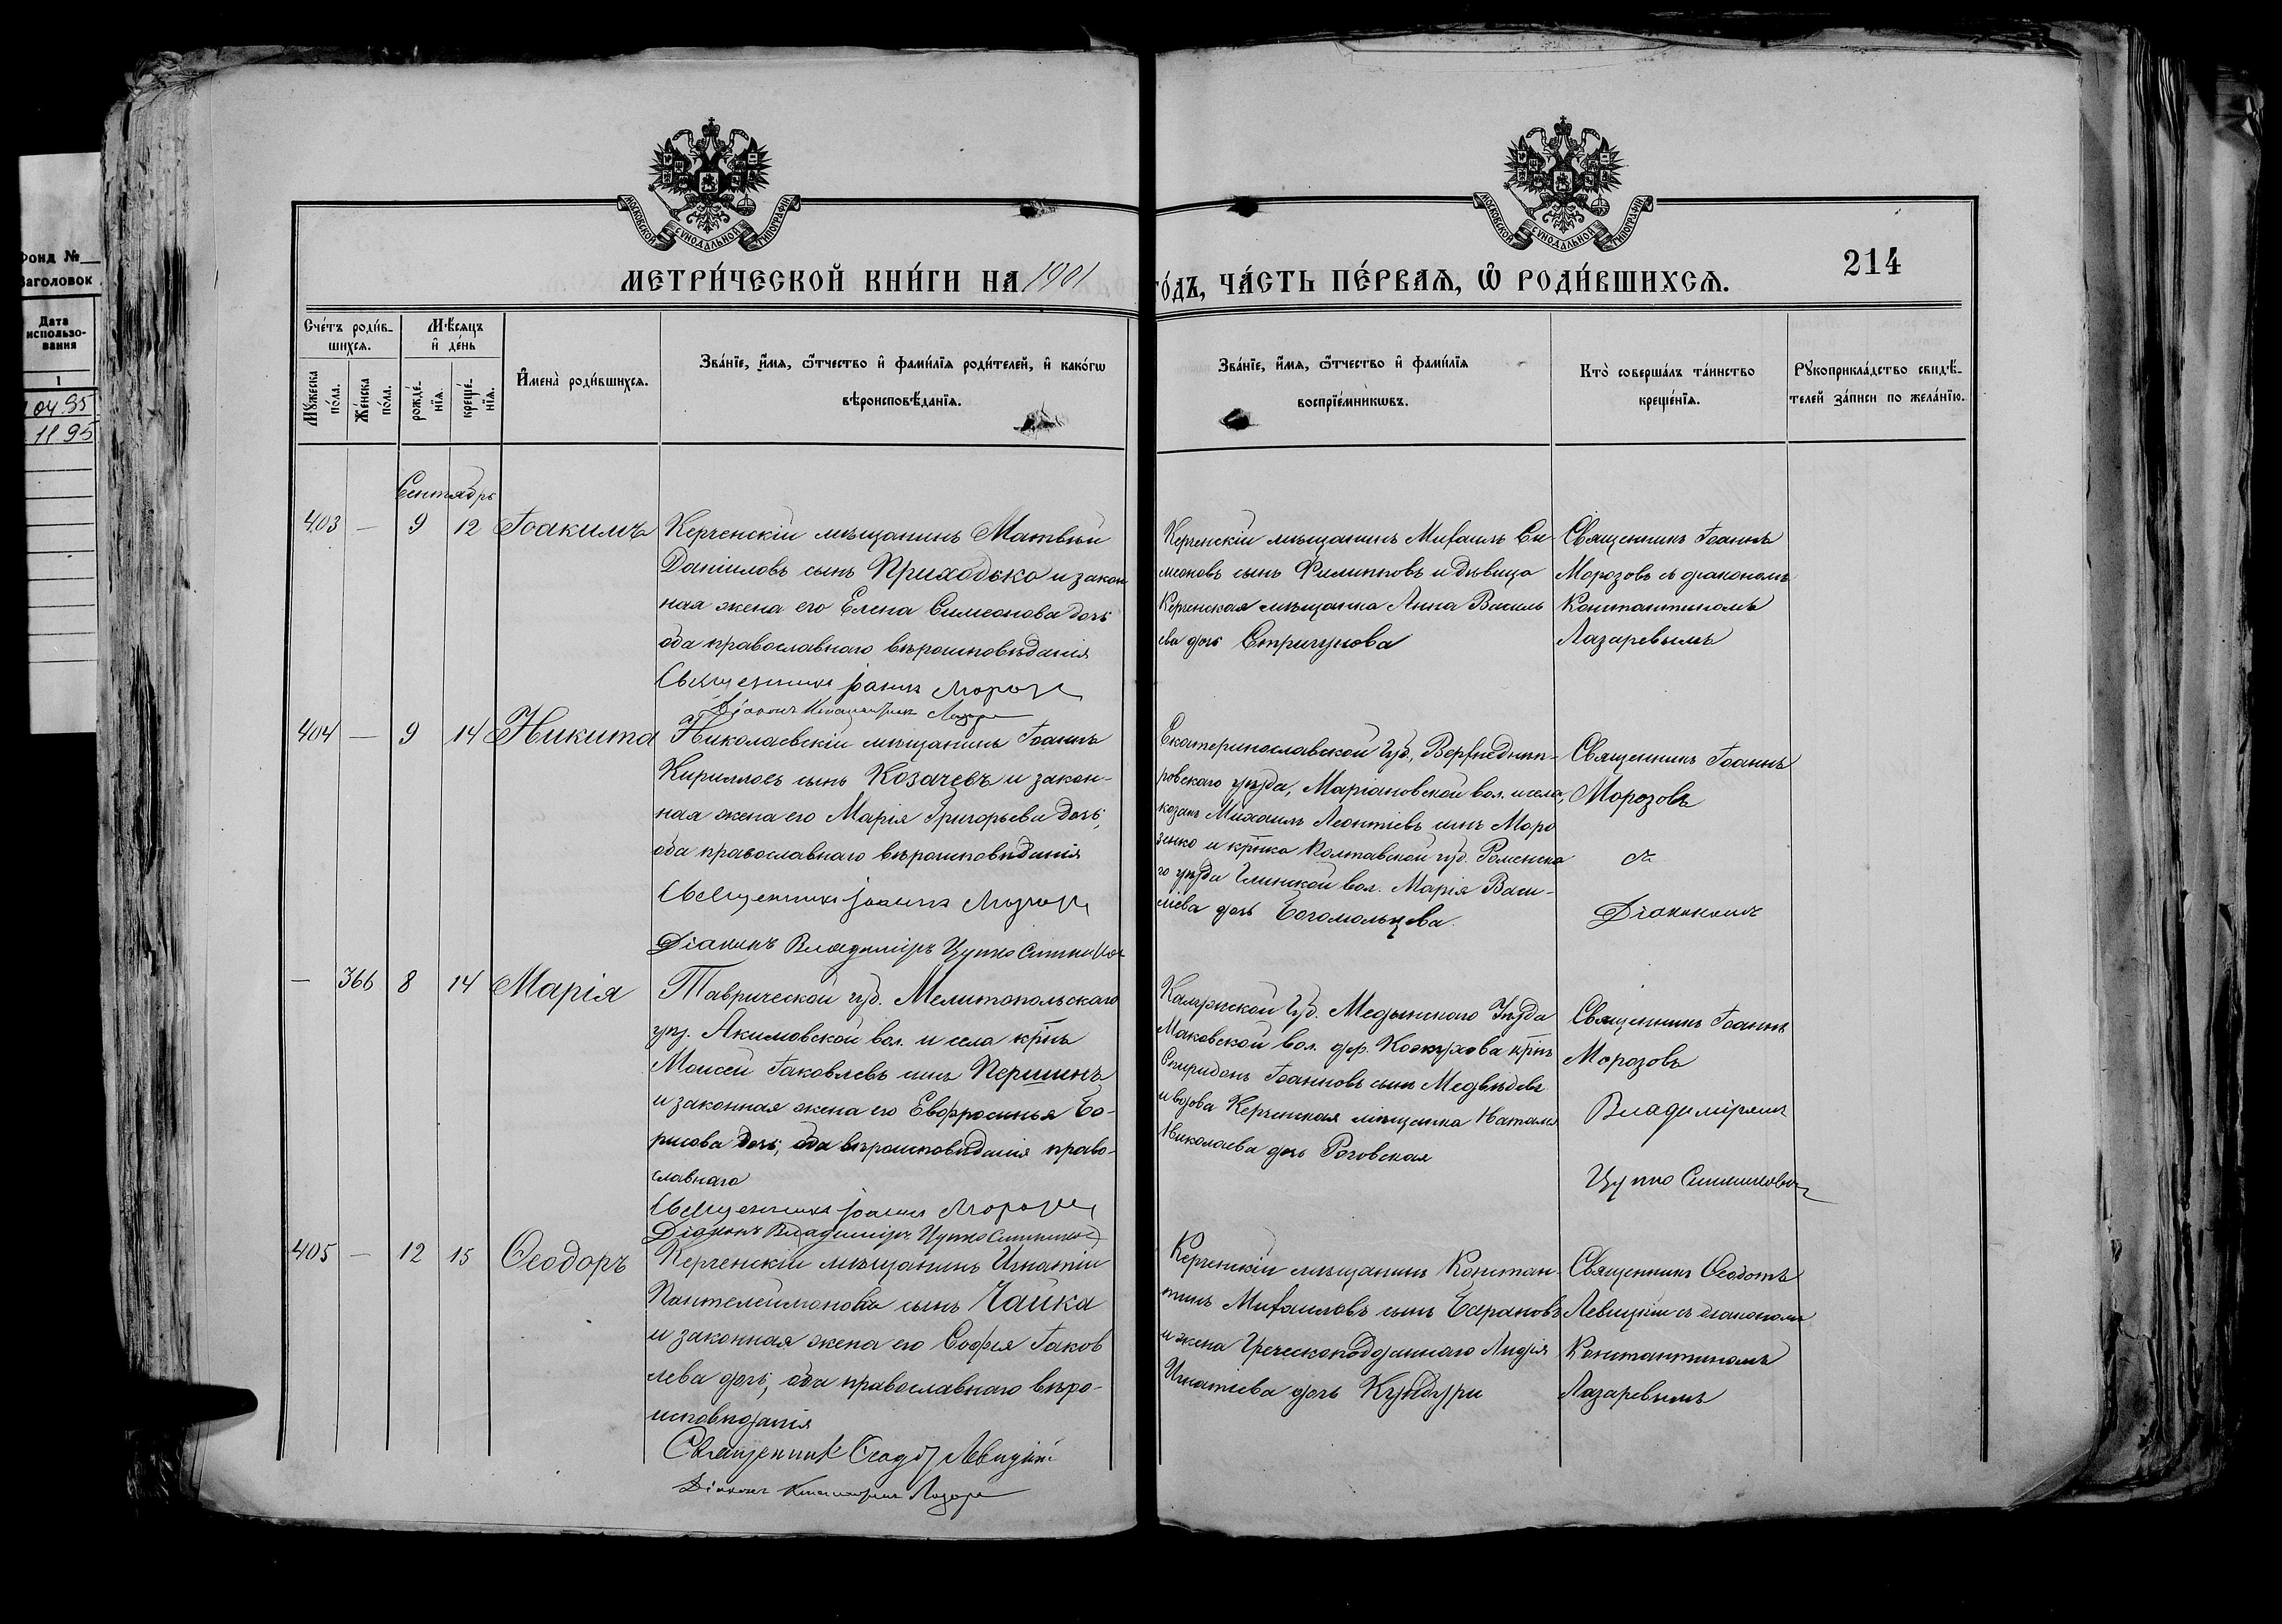 Фонд №
Заголовок
Дата
использо-
вания
1
04.95
11.95
МОСКОВСКОЙ СѴНОДАЛЬНОЙ ТИПОГРАФІИ
МОСКОВСКОЙ СѴНОДАЛЬНОЙ ТИПОГРАФІИ
214
МЕТРИ́ЧЕСКОЙ КНИ́ГИ НА 1901
ГО́ДЪ, ЧА́СТЬ ПЕ́РВАѦ, Ѡ РОДИ́ВШИХСѦ.
Сче́тъ роди́в-
шихсѧ.
Мꙋ́жеска по́ла.
Же́нска по́ла.
Мѣ́сѧцъ
и҆ де́нь
рожде́-
нїѧ.
креще́-
нїѧ.
И҆мена̀ роди́вшихсѧ.
Зва́нїе, и҆́мѧ, ѻ҆́тчество и҆ фами́лїѧ роди́телей, и҆ како́гѡ
вѣроисповѣ́данїѧ.
Зва́нїе, и҆́мѧ, ѻ҆́тчество и҆ фами́лїѧ
воспрїе́мникѡвъ.
Кто̀ соверша́лъ та́инство
креще́нїѧ.
Рꙋкоприкла́дство свидѣ́-
телей за́писи по жела́нїю.
Сентябрь
403 — 9 12 Іоакимъ
Керченскій мѣщанинъ Матвѣй
Даніиловъ сынъ Приходько и закон
ная жена его Елена Симеонова дочь
оба православнаго вѣроисповѣданія
Священникъ Іоаннъ Морозовъ
Діаконъ Константинъ Лазаре
Керченскій мѣщанинъ Михаилъ Си
меоновъ сынъ Филипповъ и дѣвица
Керченская мѣщанка Анна Василь
ева дочь Стригунова
Священникъ Іоаннъ
Морозовъ съ діакономъ
Константиномъ
Лазаревымъ
404 — 9 14 Никита
Николаевскій мѣщанинъ Іоаннъ
Кирилловъ сынъ Козачевъ и закон-
ная жена его Марія Григорьева дочь,
оба православнаго вѣроисповѣданія
Священникъ Іоаннъ Морозовъ
Діаконъ Владиміръ Цупко Ситников
Екатеринославской губ., Верхнеднѣп-
ровскаго уѣзда, Маріановской вол. и села,
козакъ Михаилъ Леонтіевъ сынъ Моро
зенко и кр҃нка Полтавской губ. Роменска
го уѣзда Глинской вол. Марія Васи-
ліева дочь Богомольцева.
Священникъ Іоаннъ
Морозовъ
съ
Діакономъ
— 366 8 14 Марія
Таврической губ. Мелитопольскаго
уѣз. Акимовской вол. и села кр҃нъ
Моисей Іаковлевъ сынъ Першинъ
и законная жена его Евфросинья Бо-
рисова дочь, оба вѣроисповѣданія право-
славнаго
Священникъ Іоаннъ Морозовъ
Діаконъ Владиміръ Цупко Ситников
Калужской Губ. Медынскаго Уѣзда
Маковской вол. дер. Кожухова кр҃нъ
Спиридонъ Іоанновъ сынъ Медвѣдевъ
и вдова Керченская мѣщанка Наталія
Николаева дочь Роговская
Священникъ Іоаннъ
Морозовъ
Владиміромъ
Цупко Ситниковым
405 — 12 15 Ѳеодоръ
Керченскій мѣщанинъ Игнатій
Пантелеимоновъ сынъ Чайка
и законная жена его Софія Іаков
лева дочь, оба православнаго вѣро-
исповѣданія
Священник Ѳеодот Левицкій
Діаконъ Константинъ Лазаре
Керченскій мѣщанинъ Констан-
тинъ Михаиловъ сынъ Барановъ
и жена Греческоподданнаго Лидія
Игнатіева дочь Кундури
Священникъ Ѳеодотъ
Левицкій съ діакономъ
Константиномъ
Лазаревымъ